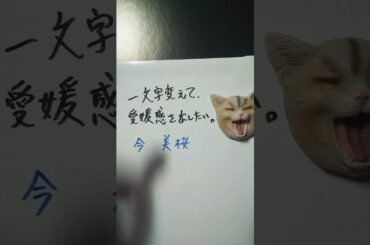 一文字変えて、
愛媛感をましたい。
今 美桜
今